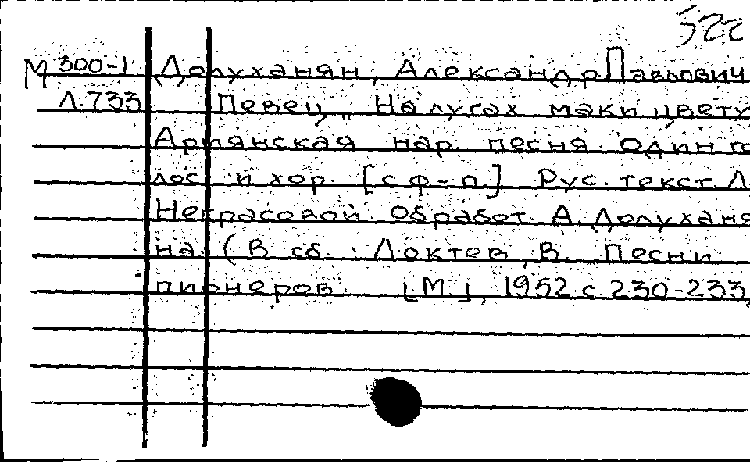 322
М 300-1 Долуханян, Александр Павлович
Л.733 Певец „На лугах маки цвету
Армянская нар. песня. Один го
лос и хор [с ф-п.] Рус. текст Л.
Некрасовой. Обработ. А. Долуханя
на. (В сб.: Локтев, В. Песни
пионеров. [М.], 1952 с. 230-233,